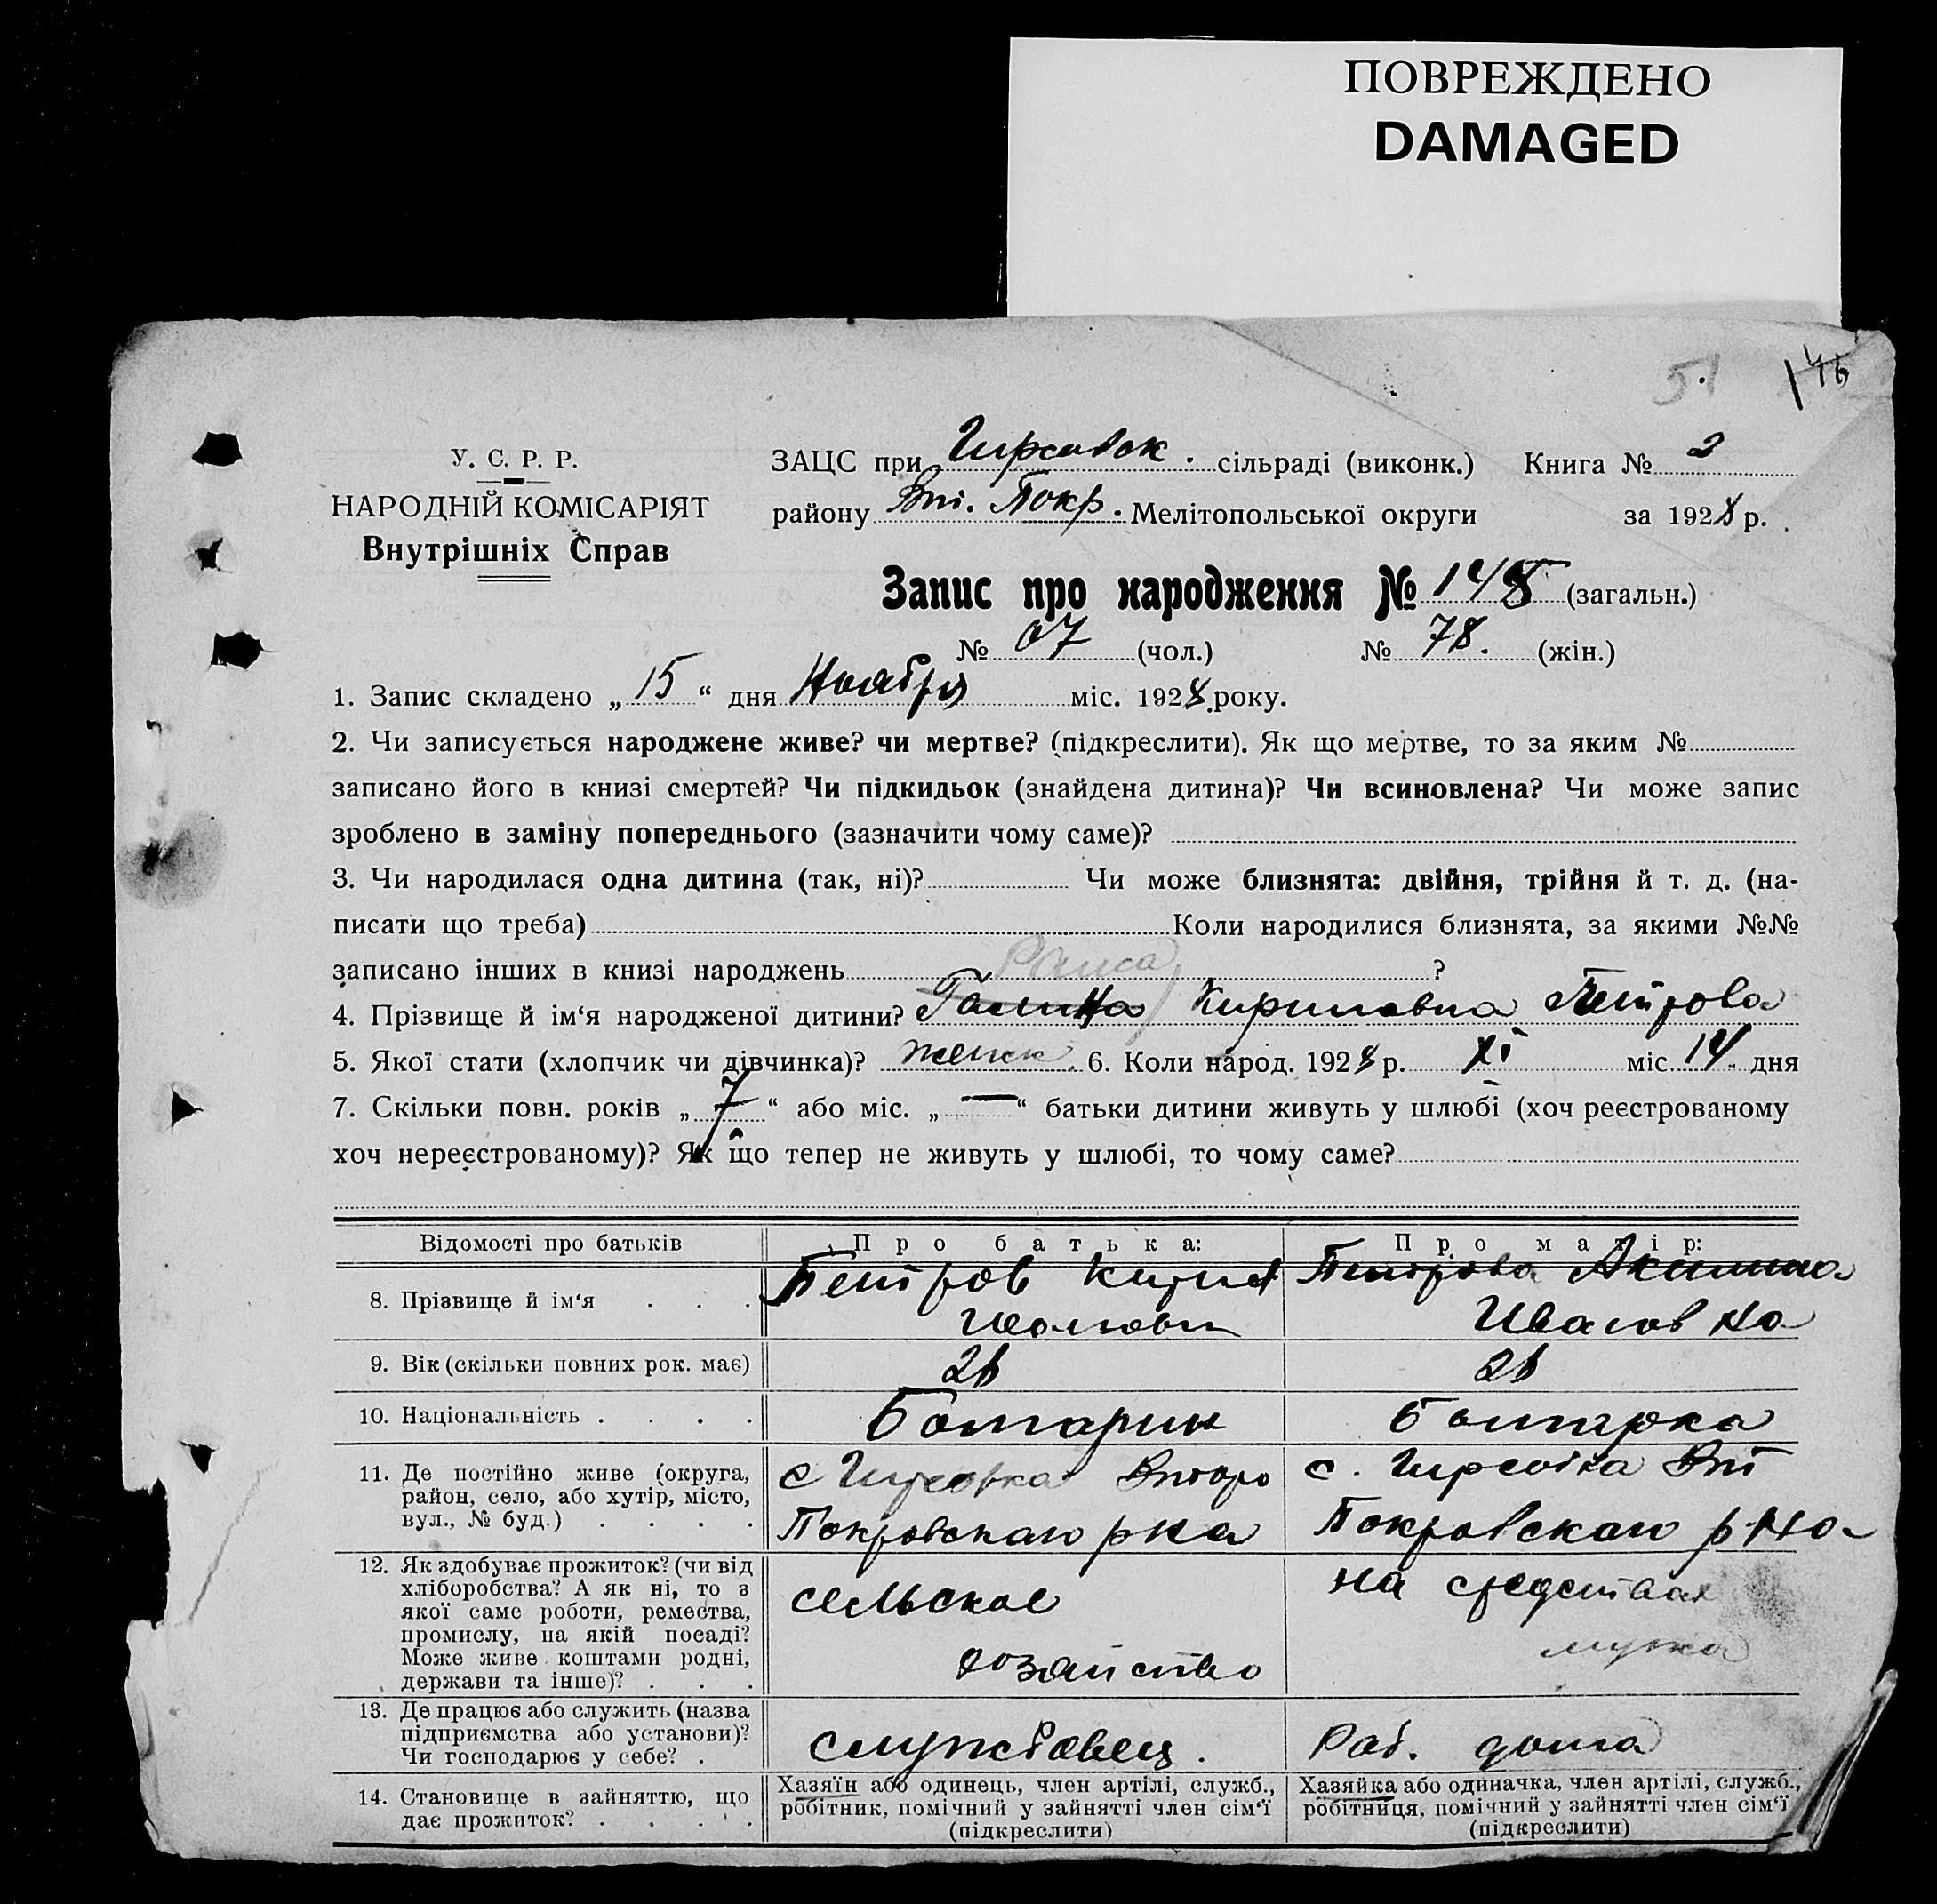 ПОВРЕЖДЕНО
DAMAGED
51
У. С. Р. Р.
НАРОДНІЙ КОМІСАРІЯТ
Внутрішніх Справ
ЗАЦС при Гирсовск. сільраді (виконк.) Книга № 2
району Вт. Покр. Мелітопольської округи за 1928 р.
Запис про народження № 145 (загальн.)
№ 67 (чол.) № 78. (жін.)
1. Запис складено „ 15 “ дня Ноября міс. 1928 року.
2. Чи записується народжене живе? чи мертве? (підкреслити). Як що мертве, то за яким №
записано його в книзі смертей? Чи підкидьок (знайдена дитина)? Чи всиновлена? Чи може запис
зроблено в заміну попереднього (зазначити чому саме)?
3. Чи народилася одна дитина (так, ні)? Чи може близнята: двійня, трійня й т. д. (на-
писати що треба) Коли народилися близнята, за якими №№
записано інших в книзі народжень ?
Раиса
4. Прізвище й ім‘я народженої дитини? Галина Кириловна Петрова
5. Якої стати (хлопчик чи дівчинка)? женск. 6. Коли народ. 1928 р. XI міс. 14 дня
7. Скільки повн. років „ 7 “ або міс. „ — “ батьки дитини живуть у шлюбі (хоч реєстрованому
хоч нереєстрованому)? Як що тепер не живуть у шлюбі, то чому саме?
Відомості про батьків Про батька: Про матір:
8. Прізвище й ім‘я Петров Кирил Петрова Акилина
Ивановна
9. Вік (скільки повних рок. має) 26 26
10. Національність Болгарин болгарка
11. Де постійно живе (округа, район, село, або хутір, місто, вул., № буд.) с Гирсовка Второ с. Гирсовка Вт
Покровскаго р на Покровскаго р-на
12. Як здобуває прожиток? (чи від хліборобства? А як ні, то з якої саме роботи, ремества, промислу, на якій посаді? Може живе коштами родні, держави та інше)? сельское на средствах
хозяйство мужа
13. Де працює або служить (назва підприємства або установи)? Чи господарює у себе? Раб. дома
14. Становище в зайняттю, що дає прожиток? Хазяїн або одинець, член артілі, служб., робітник, помічний у зайнятті член сім‘ї (підкреслити) Хазяйка або одиначка, член артілі, служб., робітниця, помічний у зайнятті член сім‘ї (підкреслити)